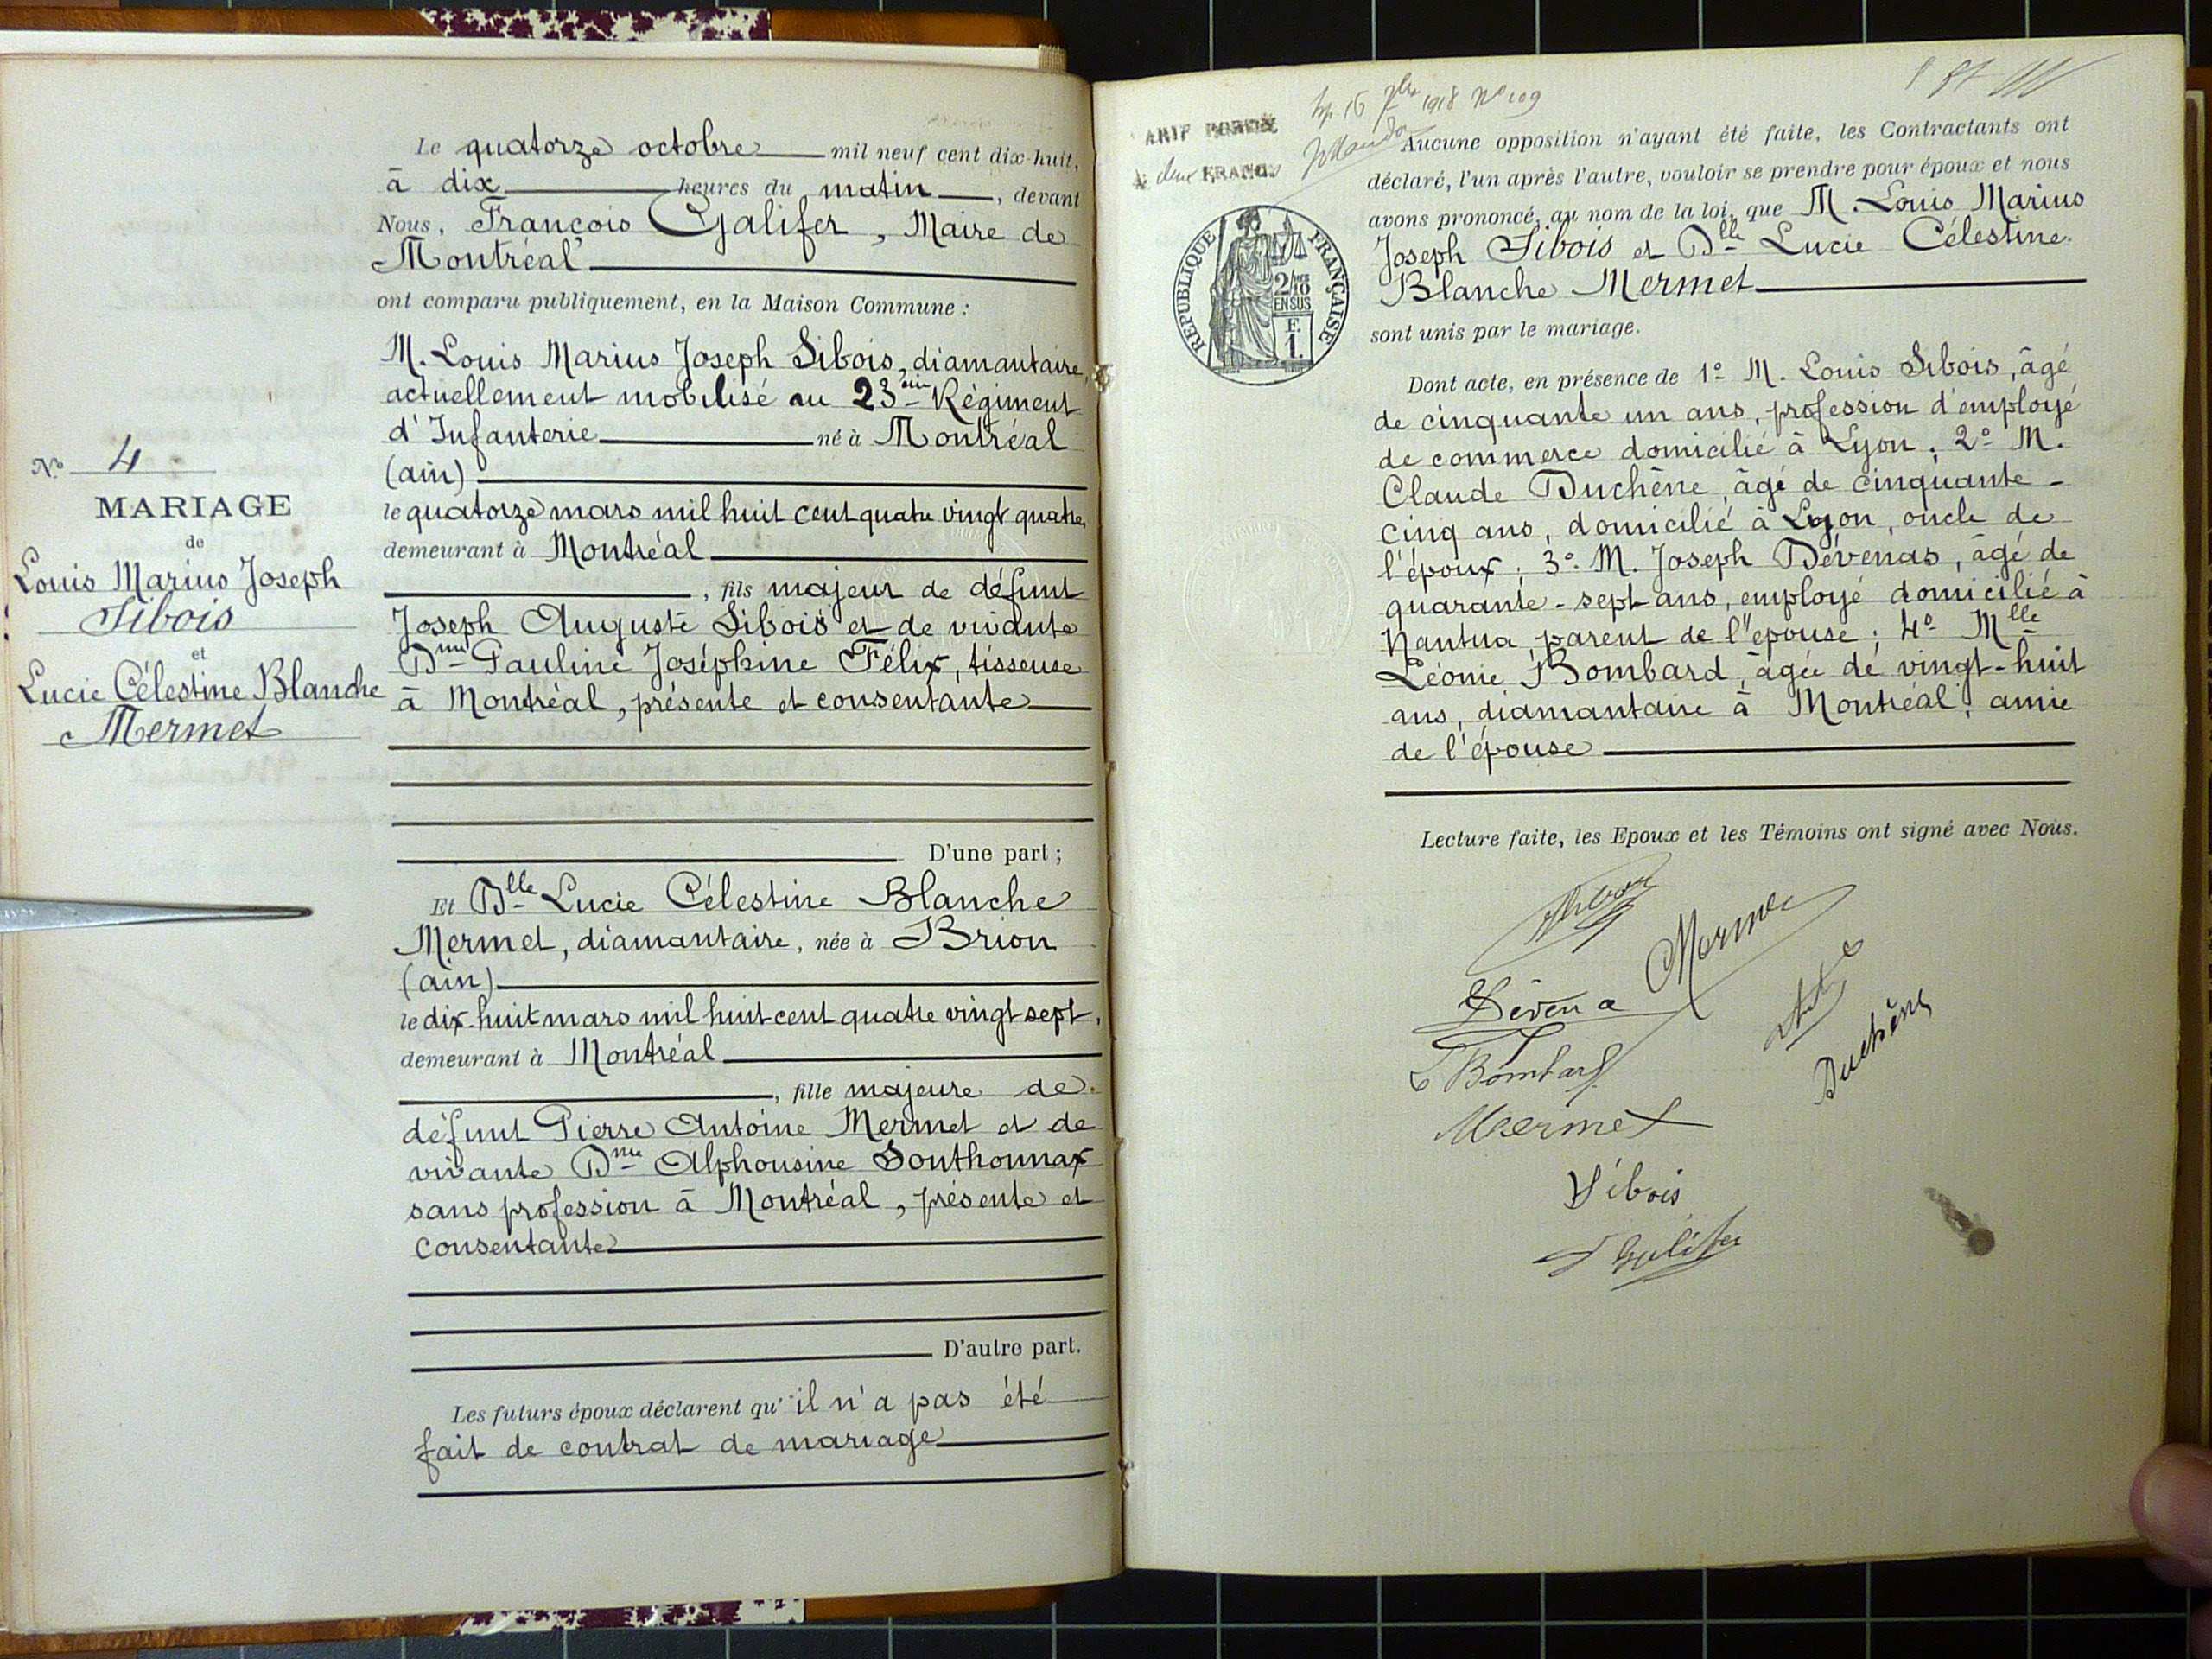 N° 4
MARIAGE
de
Louis Marius Joseph
Sibois
et
Lucie Célestine Blanche
Mermet
Le quatorze octobre mil neuf cent dix-huit,
à dix heures du matin, devant
Nous, François Galifer, Maire de
Montréal
ont comparu publiquement, en la Maison Commune :
M. Louis Marius Joseph Sibois, diamantaire,
actuellement mobilisé au 23ème Régiment
d'Infanterie né à Montréal
(ain)
le quatorze mars mil huit cent quatre vingt quatre,
demeurant à Montréal
, fils majeur de défunt
Joseph Auguste Sibois et de vivante
Dme Pauline Joséphine Félix, tisseuse
à Montréal, présente et consentante
D'une part ;
Et Dlle Lucie Célestine Blanche
Mermet, diamantaire, née à Brion
(ain)
le dix-huit mars mil huit cent quatre vingt sept,
demeurant à Montréal
, fille majeure de
défunt Pierre Antoine Mermet et de
vivante Dme Alphonsine Southonnax
sans profession à Montréal, présente et
consentante
D'autre part.
Les futurs époux déclarent qu'il n'a pas été
fait de contrat de mariage
16 7bre 1918 N° 109
deux FRANCS
RÉPUBLIQUE FRANÇAISE
2/10
EN SUS
F.
1.
Aucune opposition n'ayant été faite, les Contractants ont
déclaré, l'un après l'autre, vouloir se prendre pour époux et nous
avons prononcé, au nom de la loi, que M. Louis Marius
Joseph Sibois et Dlle Lucie Célestine
Blanche Mermet
sont unis par le mariage.
Dont acte, en présence de 1° M. Louis Sibois, âgé
de cinquante un ans, profession d'employé
de commerce domicilié à Lyon ; 2° M.
Claude Duchêne, âgé de cinquante-
cinq ans, domicilié à Lyon, oncle de
l'époux ; 3° M. Joseph Dévenas, âgé de
quarante-sept ans, employé domicilié à
Nantua, parent de l'épouse ; 4° Mlle
Léonie Bombard, âgée de vingt-huit
ans, diamantaire à Montréal, amie
de l'épouse
Lecture faite, les Epoux et les Témoins ont signé avec Nous.
Mermet
Dévena
Duchêne
L Bombard
Mermet
Sibois
F Galifer